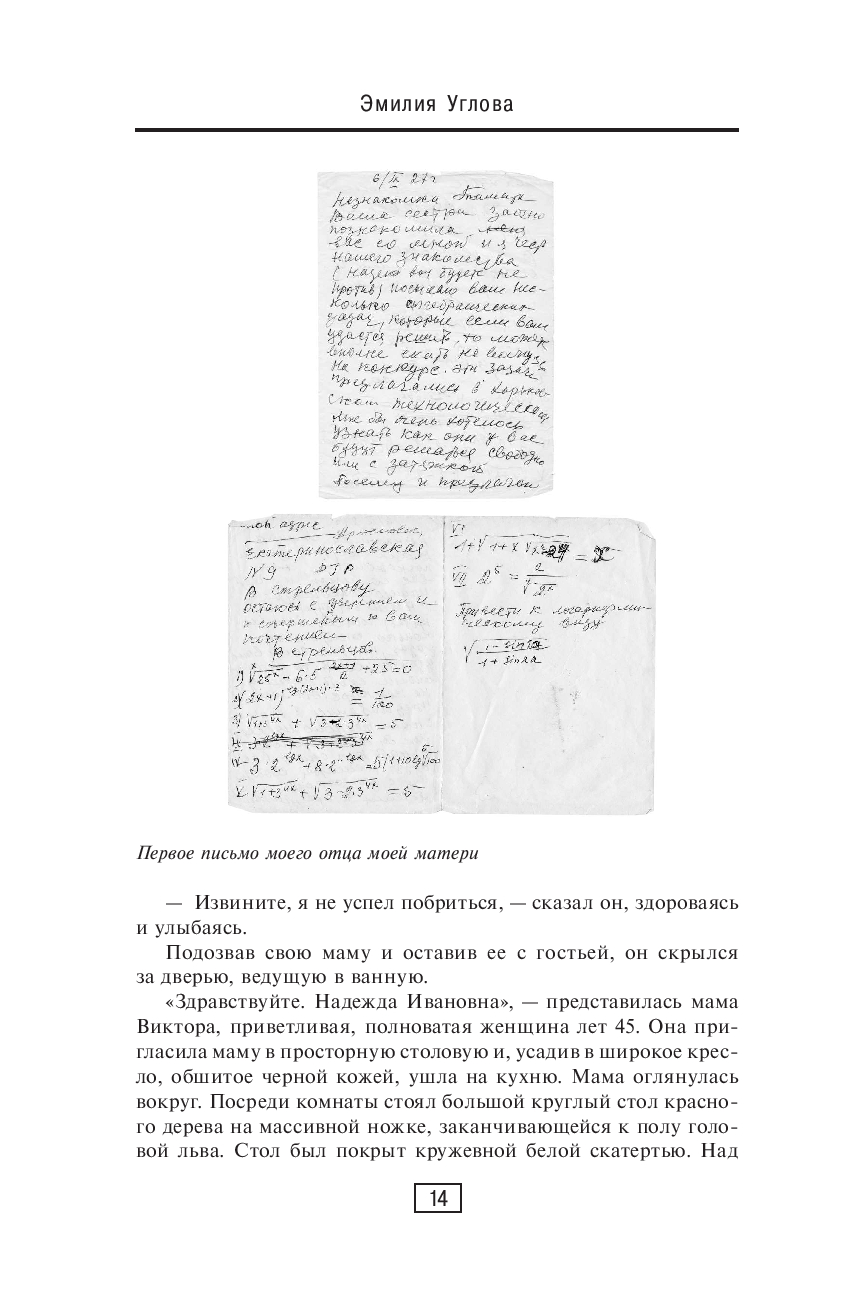 Эмилия Углова
6/IX 27 г
Незнакомка
Ваша сестра заочно
познакомила
вас со мной и в честь
нашего знакомства
(надеюсь вы будете не
против) посылаю вам не-
колько алгебраических
задач, которые если вам
удастся решить, то можете
вполне ехать
на конкурс. Эти задачи
предлагались в Харьков-
ском технологическом
Мне бы очень хотелось
узнать как они у вас
будут решаться свободно
или с затяжкой
мой адрес
Екатеринославская
№ 9
В Стрельцову
остаюсь с уважением и
с совершенным к вам
почтением
В Стрельцов.
1) + 25 = 0
= 1/100
3) = 5
= 5
VI
= x
VII
Привести к логарифми-
ческому виду
Первое письмо моего отца моей матери
— Извините, я не успел побриться, — сказал он, здороваясь
и улыбаясь.
Подозвав свою маму и оставив ее с гостьей, он скрылся
за дверью, ведущую в ванную.
«Здравствуйте. Надежда Ивановна», — представилась мама
Виктора, приветливая, полноватая женщина лет 45. Она при-
гласила маму в просторную столовую и, усадив в широкое крес-
ло, обшитое черной кожей, ушла на кухню. Мама оглянулась
вокруг. Посреди комнаты стоял большой круглый стол красно-
го дерева на массивной ножке, заканчивающейся к полу голо-
вой льва. Стол был покрыт кружевной белой скатертью. Над
14